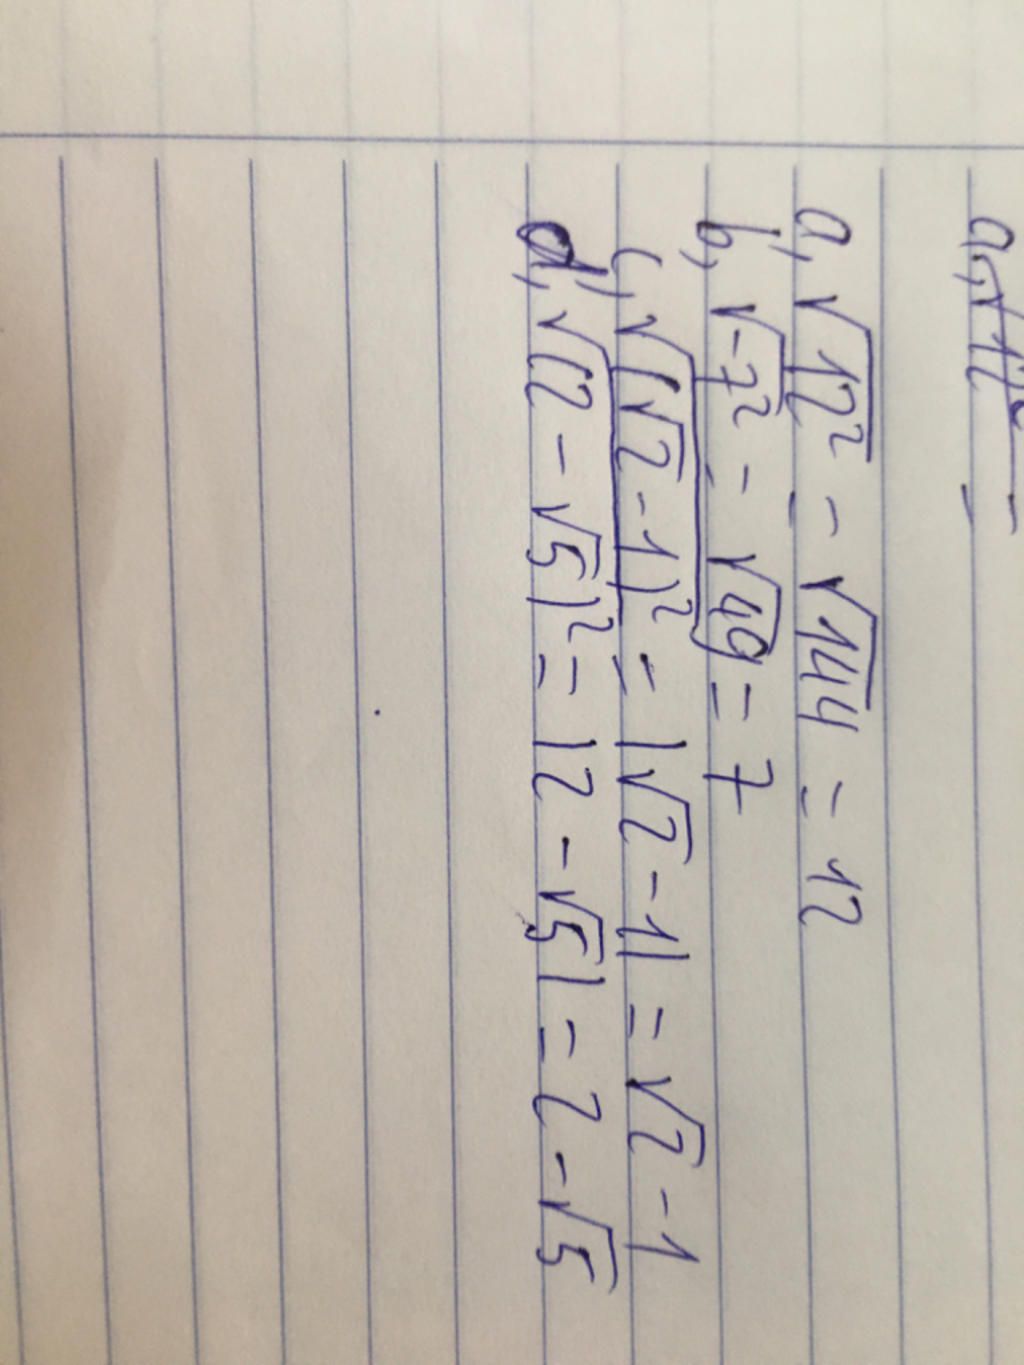 a, √12² =
a, √12² = √144 = 12
b, √-7² = √49 = 7
c, √(√2 - 1)² = |√2 - 1| = √2 - 1
d, √(2 - √5)² = |2 - √5| = 2 - √5